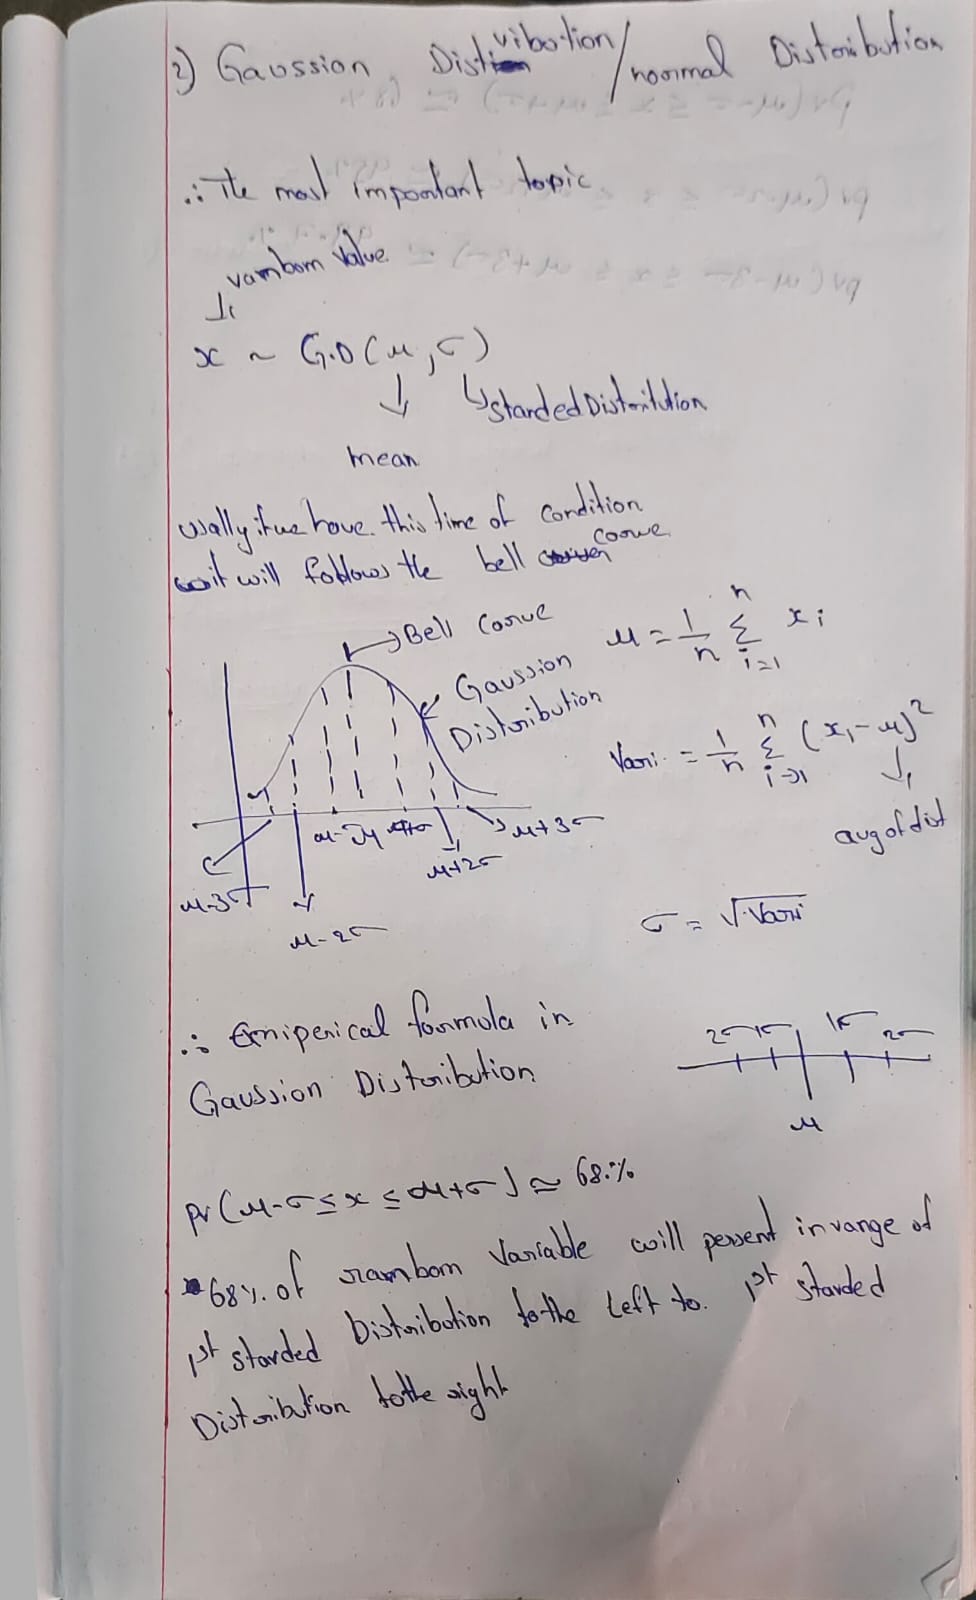 2) Gaussion Distribution / noormal Distoribution
∴ The most important topic
rambom Value
x ~ G.D(μ, σ)
↳ starded Distoribution
mean
usally if we have this time of condition
it will follows the bell coorve
→ Bell Coorve
Gaussion
Distoribution
μ = 1/n Σ i=1 n xi
Vari = 1/n Σ i=1 n (xi - μ)²
avg of dist
μ-3σ μ-2σ μ-σ μ μ+σ μ+2σ μ+3σ
σ = √Vari
∴ Emiperical foormola in
Gaussion Distoribution
2σ 1σ 1σ 2σ
μ
pr(μ-σ ≤ x ≤ μ+σ) ≃ 68.%
68%. of rambom Variable will persent in range of
1st starded Distoribution to the Left to. 1st starded
Distoribution to the right